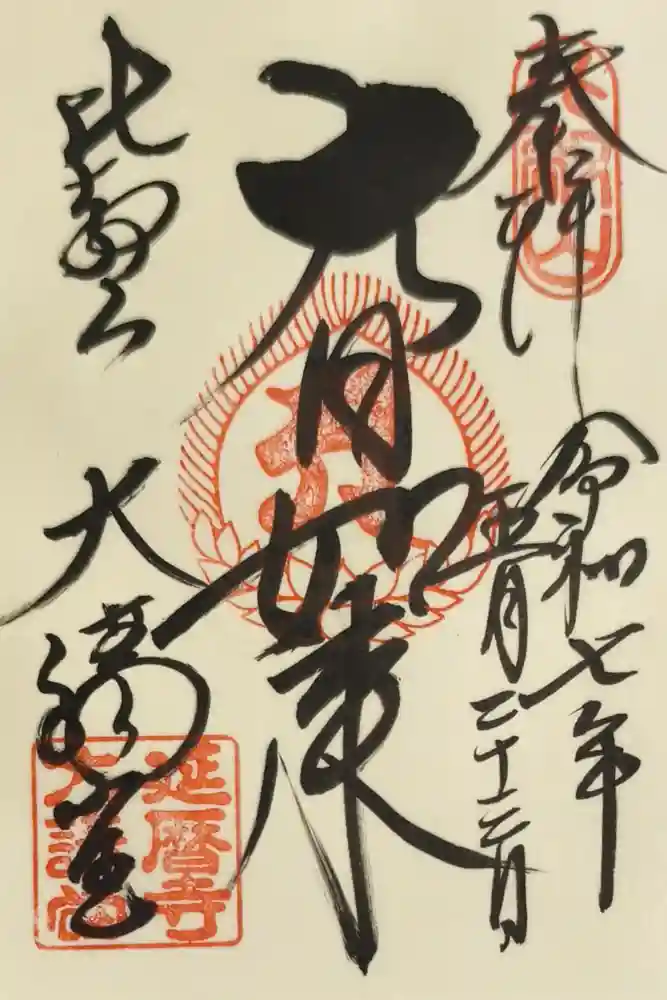 奉拝
令和七年
五月二十六日
大日如来
比叡山
大講堂
延暦寺
大講堂